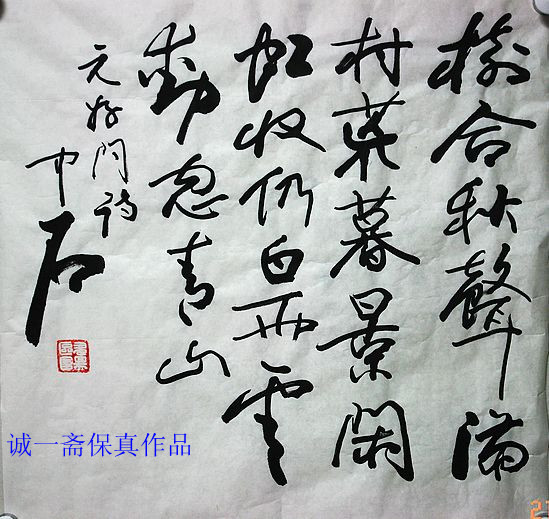 樹合秋聲滿
村荒暮景閑
虹收仍白雨雲
動忽青山
元好问诗
中石
诚一斋保真作品